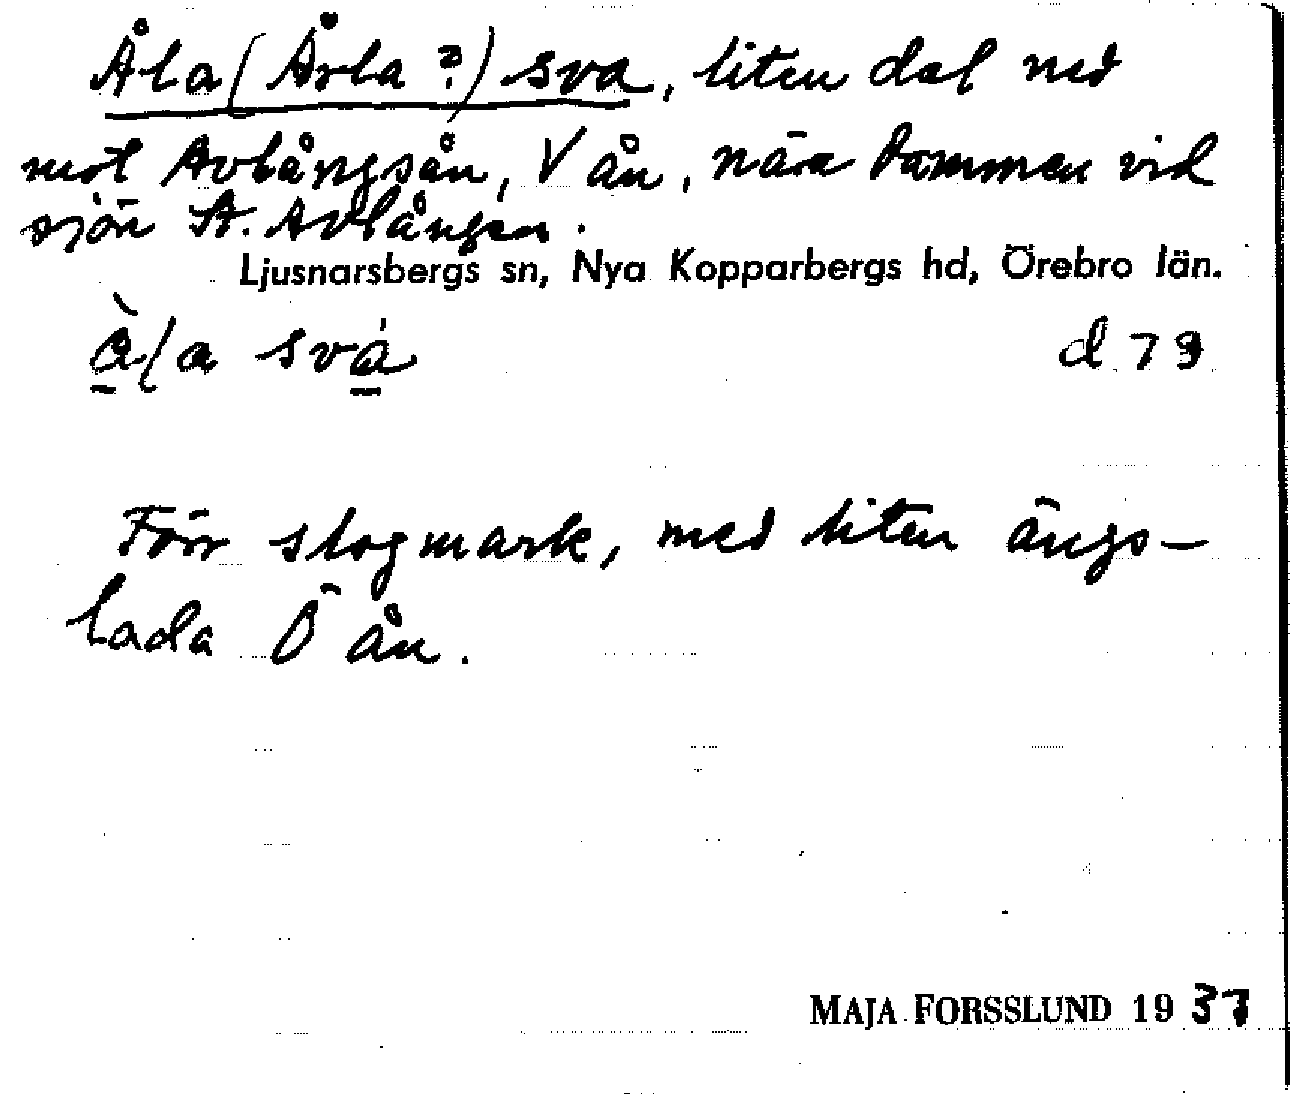 Åla (Årla ?) sva, liten dal ned
mot Avlångsån, V ån, nära dammen vid
sjön St. Avlången.
Ljusnarsbergs sn, Nya Kopparbergs hd, Örebro län.
d 79
Förr slogmark, med liten ängs-
lada Ö ån.
MAJA FORSSLUND 1937